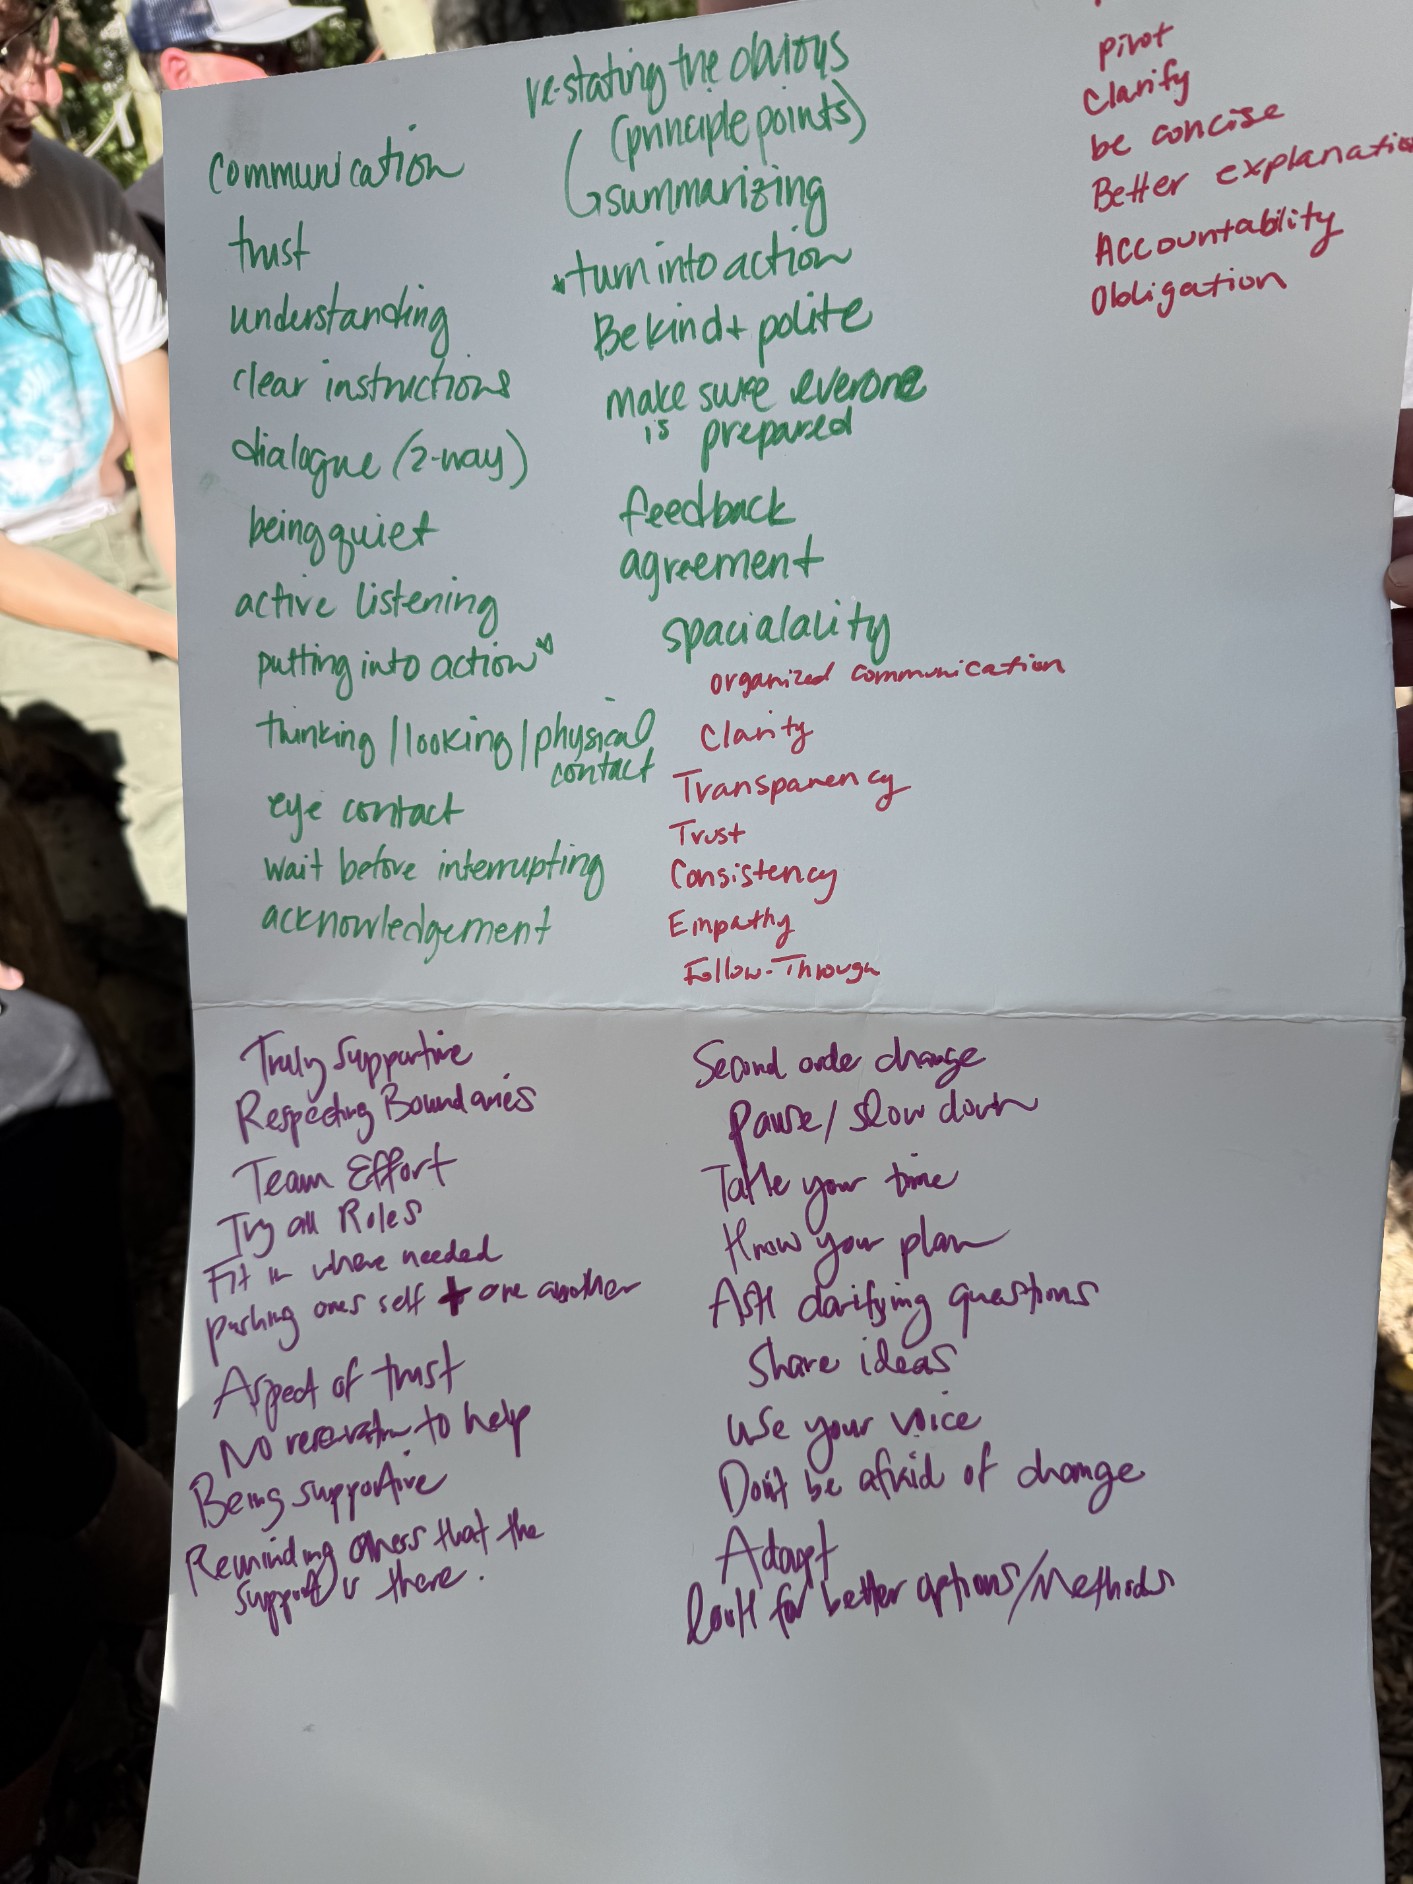 communication
trust
understanding
clear instructions
dialogue (2-way)
being quiet
active listening
putting into action
thinking / looking / physical
contact
eye contact
wait before interrupting
acknowledgement
re-stating the obvious
(principle points)
summarizing
*turn into action
Be kind + polite
make sure everone
is prepared
feedback
agreement
spacialality
organized communication
Clarity
Transparency
Trust
Consistency
Empathy
Follow-Through
pivot
Clarify
be concise
Better explanatio
Accountability
Obligation
Truly supportive
Respecting Boundaries
Team Effort
Try all Roles
Fit in where needed
pushing ones self + one another
Aspect of trust
No reservation to help
Being supportive
Reminding others that the
support is there.
Second order change
Pause / slow down
Take your time
Know your plan
Ask clarifying questions
Share ideas
use your voice
Don't be afraid of change
Adapt
Look for better options/Methods